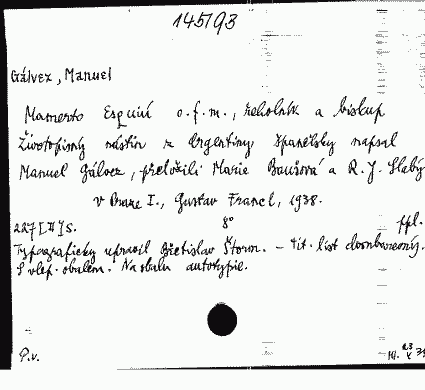 145/93
Gálvez, Manuel
Mamerto Esquiú o.f.m., řeholník a biskup
Životopisný nástin z Argentiny španělsky napsal
Manuel Gálvez, přeložili Marie Baušová a R. J. Slabý
v Praze I., Gustav Francl, 1938.
227 [II] s. 8° ppl.
Typograficky upravil Břetislav Štorm. – Tit. list dvoubarevný.
S vlep. obalem. Na obalu autotypie.
P.v.